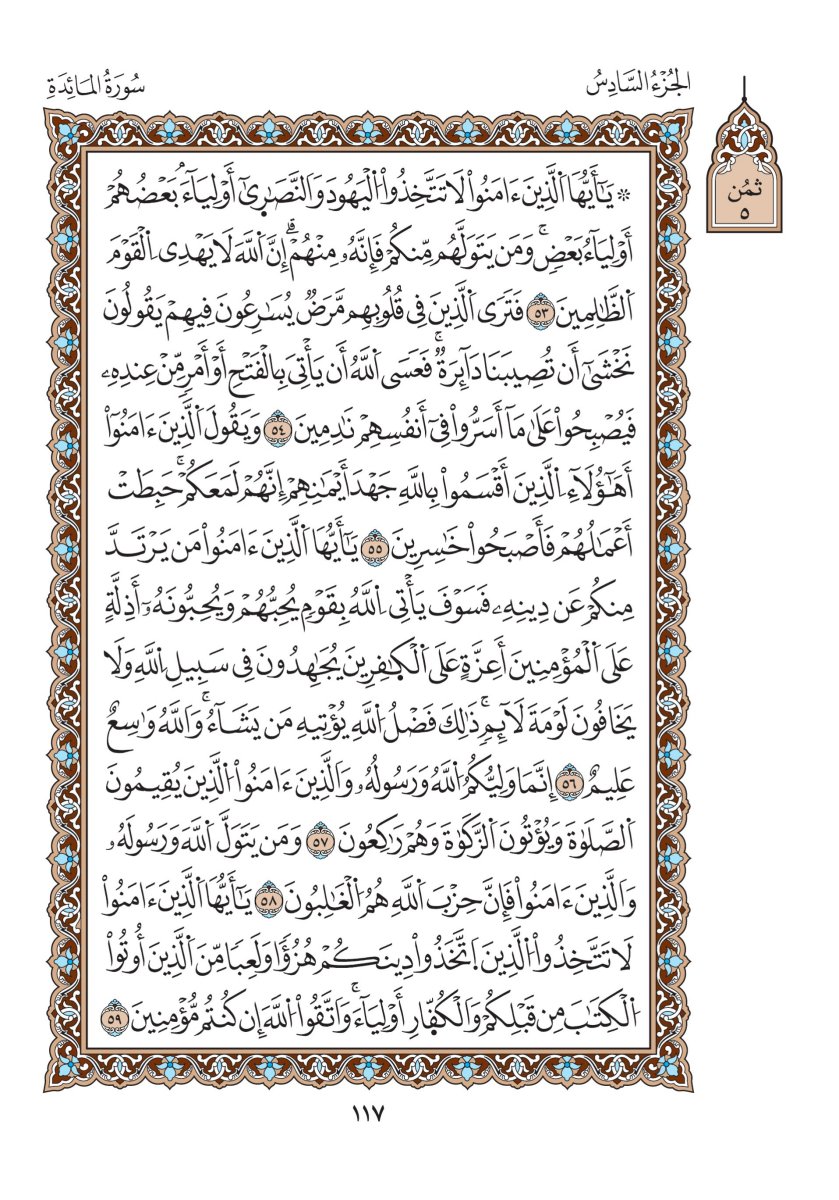 الجُزْءُ السَّادِسُ
سُورَةُ المَائِدَةِ
ثُمُن
٥
۞ يَٰٓأَيُّهَا اَ۬لَّذِينَ ءَامَنُواْ لَا تَتَّخِذُواْ اُ۬لۡيَهُودَ وَالنَّصَٰرِىٰٓ أَوۡلِيَآءَۘ بَعۡضُهُمۡ
أَوۡلِيَآءُ بَعۡضٖۚ وَمَن يَتَوَلَّهُم مِّنكُمۡ فَإِنَّهُۥ مِنۡهُمۡۗ إِنَّ اَ۬للَّهَ لَا يَهۡدِي اِ۬لۡقَوۡمَ
اَ۬لظَّٰلِمِينَ ٥٣ فَتَرَى اَ۬لَّذِينَ فِي قُلُوبِهِم مَّرَضٞ يُسَٰرِعُونَ فِيهِمۡ يَقُولُونَ
نَخۡشَىٰٓ أَن تُصِيبَنَا دَآئِرَةٞۚ فَعَسَى اَ۬للَّهُ أَن يَأۡتِيَ بِالۡفَتۡحِ أَوۡ أَمۡرٖ مِّنۡ عِندِهِۦ
فَيُصۡبِحُواْ عَلَىٰ مَآ أَسَرُّواْ فِيٓ أَنفُسِهِمۡ نَٰدِمِينَ ٥٤ وَيَقُولَ اَ۬لَّذِينَ ءَامَنُوٓاْ
أَهَٰٓؤُلَآءِ اِ۬لَّذِينَ أَقۡسَمُواْ بِاللَّهِ جَهۡدَ أَيۡمَٰنِهِمۡ إِنَّهُمۡ لَمَعَكُمۡۚ حَبِطَتۡ
أَعۡمَٰلُهُمۡ فَأَصۡبَحُواْ خَٰسِرِينَ ٥٥ يَٰٓأَيُّهَا اَ۬لَّذِينَ ءَامَنُواْ مَن يَرۡتَدَّ
مِنكُمۡ عَن دِينِهِۦ فَسَوۡفَ يَأۡتِي اِ۬للَّهُ بِقَوۡمٖ يُحِبُّهُمۡ وَيُحِبُّونَهُۥٓ أَذِلَّةٍ
عَلَى اَ۬لۡمُؤۡمِنِينَ أَعِزَّةٍ عَلَى اَ۬لۡكٰ۪فِرِينَ يُجَٰهِدُونَ فِي سَبِيلِ اِ۬للَّهِ وَلَا
يَخَافُونَ لَوۡمَةَ لَآئِمٖۚ ذَٰلِكَ فَضۡلُ اُ۬للَّهِ يُؤۡتِيهِ مَن يَشَآءُۚ وَاَللَّهُ وَٰسِعٌ
عَلِيمٌ ٥٦ إِنَّمَا وَلِيُّكُمُ اُ۬للَّهُ وَرَسُولُهُۥ وَاَلَّذِينَ ءَامَنُواْ اُ۬لَّذِينَ يُقِيمُونَ
اَ۬لصَّلَوٰةَ وَيُؤۡتُونَ اَ۬لزَّكَوٰةَ وَهُمۡ رَٰكِعُونَ ٥٧ وَمَن يَتَوَلَّ اَ۬للَّهَ وَرَسُولَهُۥ
وَاَلَّذِينَ ءَامَنُواْ فَإِنَّ حِزۡبَ اَ۬للَّهِ هُمُ اُ۬لۡغَٰلِبُونَ ٥٨ يَٰٓأَيُّهَا اَ۬لَّذِينَ ءَامَنُواْ
لَا تَتَّخِذُواْ اُ۬لَّذِينَ اَ۪تَّخَذُواْ دِينَكُمۡ هُزُؤٗا وَلَعِبٗا مِّنَ اَ۬لَّذِينَ أُوتُواْ
اُ۬لۡكِتَٰبَ مِن قَبۡلِكُمۡ وَالۡكُفّ۪ارِ أَوۡلِيَآءَۚ وَاَتَّقُواْ اُ۬للَّهَ إِن كُنتُم مُّؤۡمِنِينَ ٥٩
١١٧